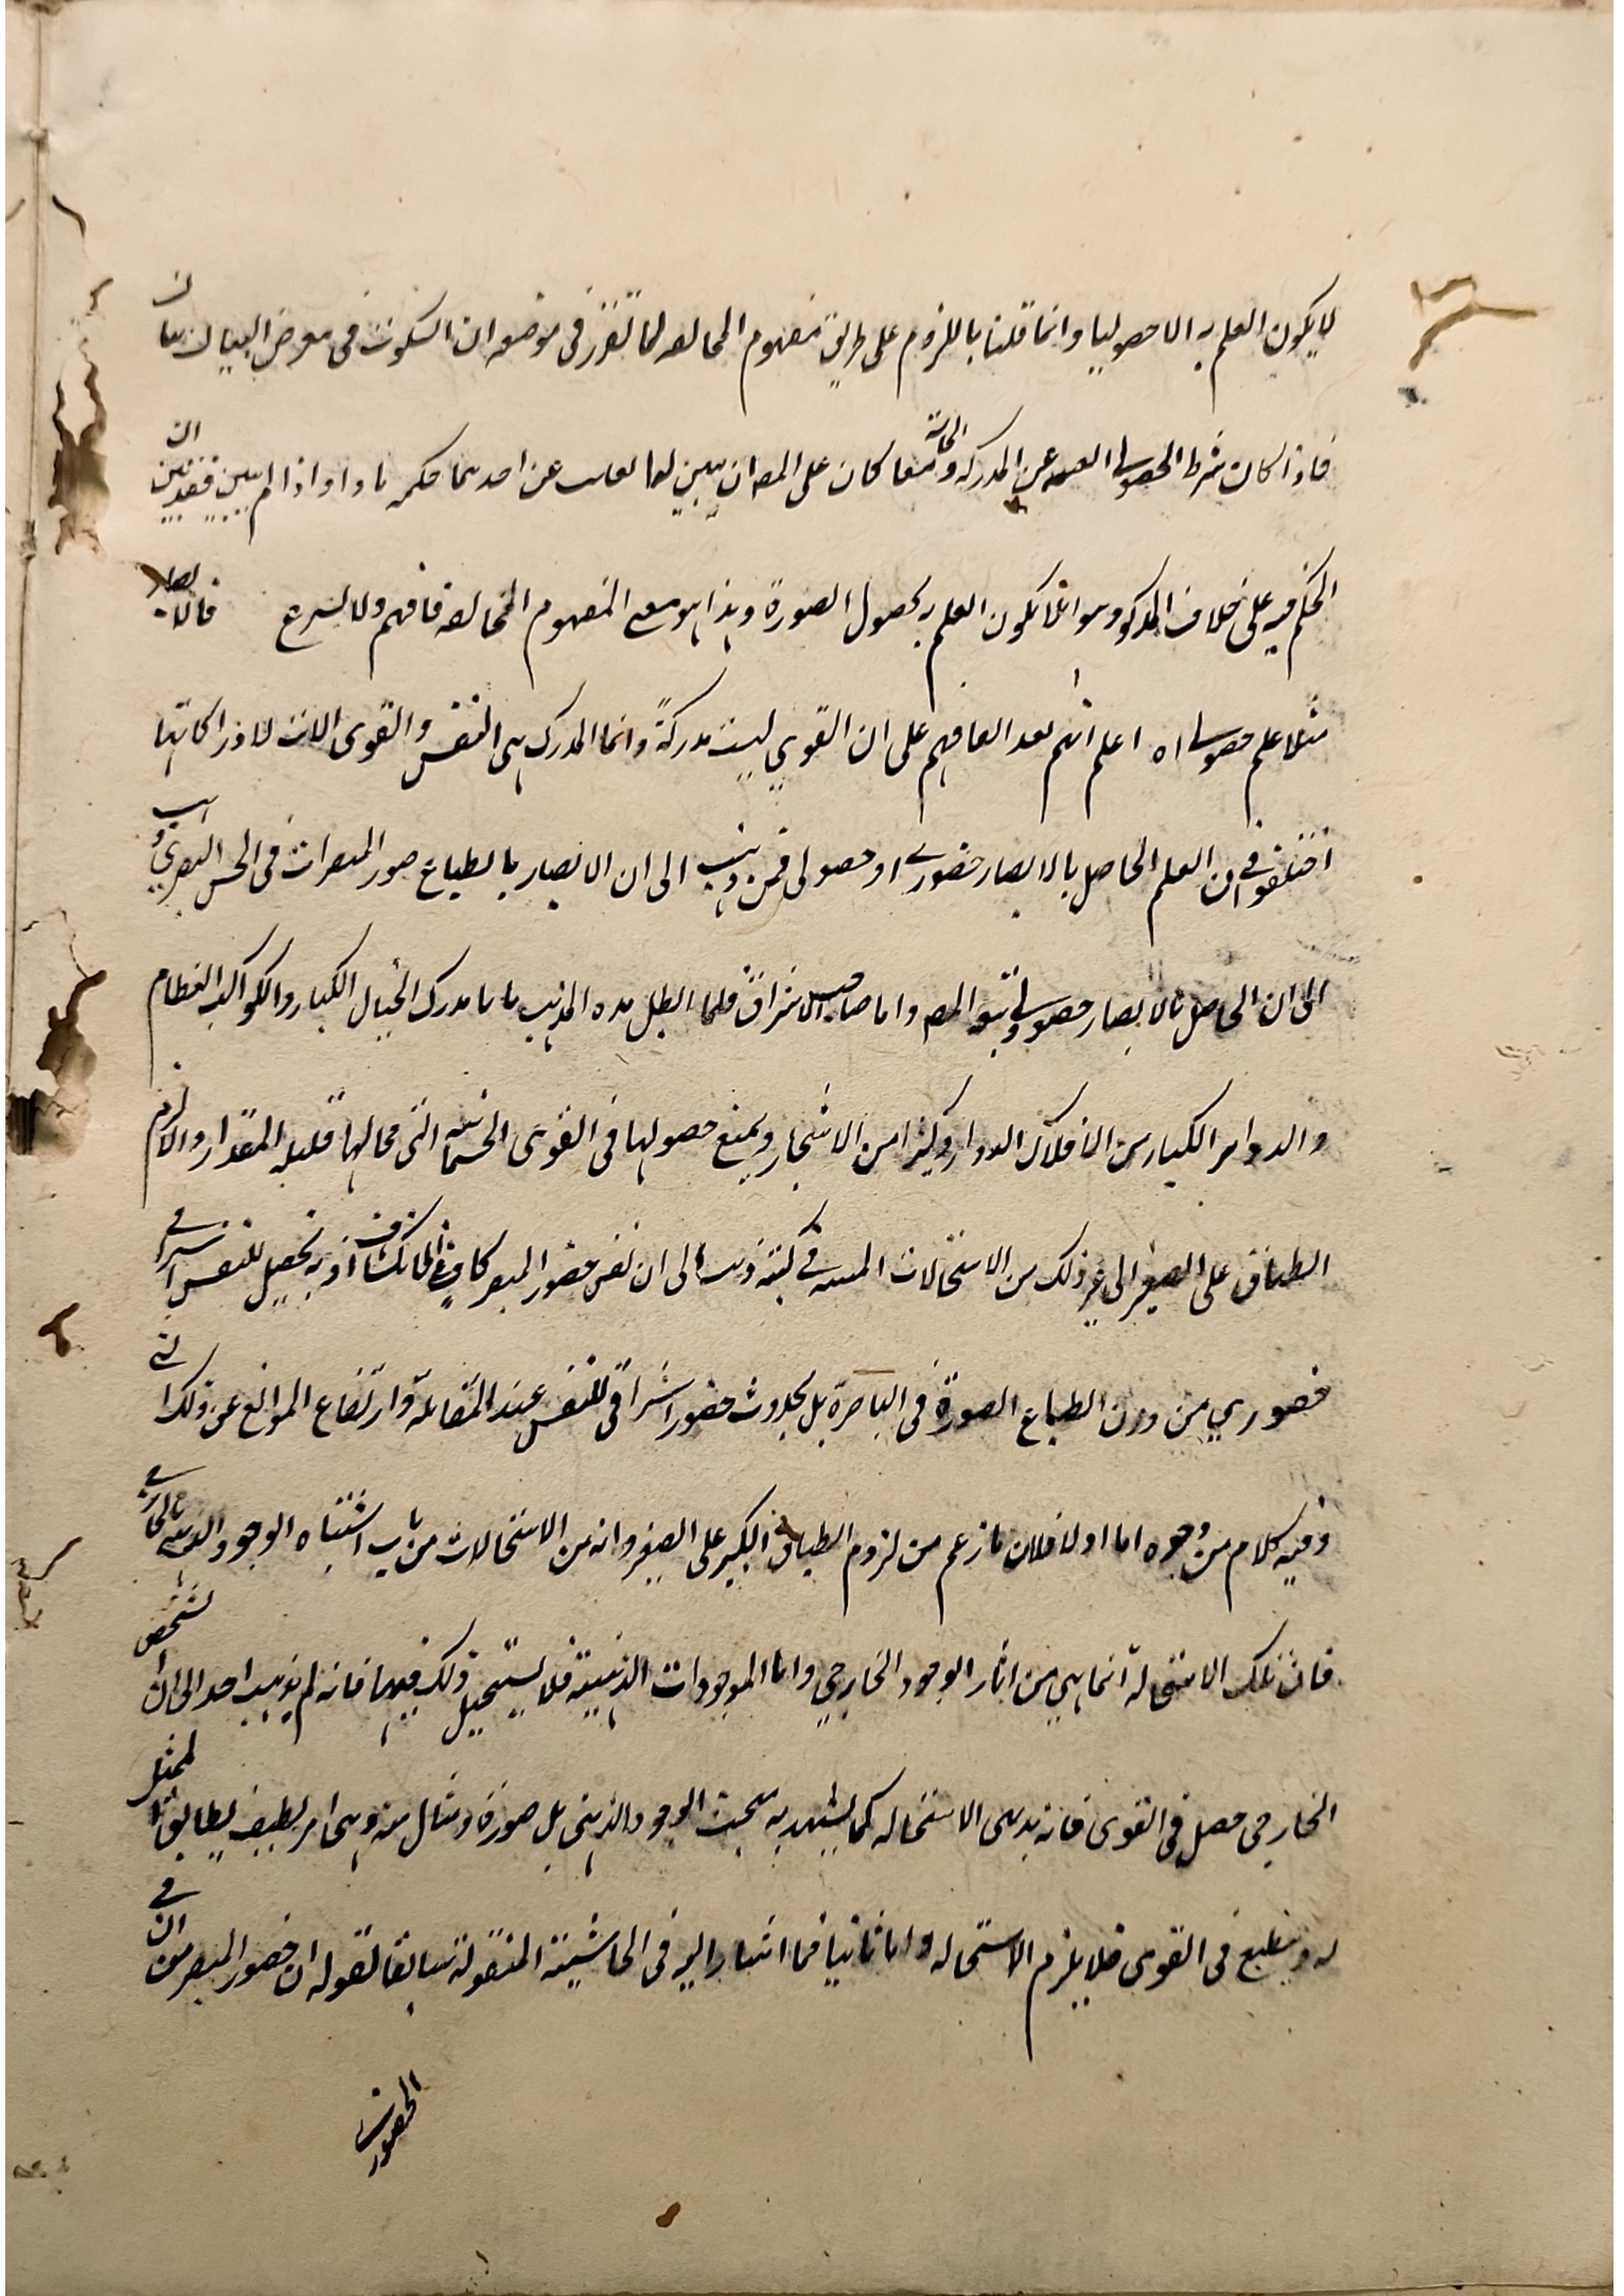 لا يكون العلم به الا حصوليا وانما قلنا باللزوم على طريق مفهوم المخالفه لما تقرر فى موضعه ان السكوت فى معرض البيان بيان
فاذا كان شرط الحصولى الغيبه عن المدركه والحاسة معا كان على المص ان يبين لما تغيب عن احدهما حكمه واذا لم يبين فقد تبين ان
الحكم فيه على خلاف المذكور وهو ان لا يكون العلم به بحصول الصورة وهذا هو معنى المفهوم المخالفه فافهم ولا تسرع قال لابصار
مثلا علم حصولى اه اعلم انهم بعد اتفاقهم على ان القوى ليست مدركة وانما المدرك هى النفس والقوى الات لادراكاتها
اختلفوا فى ان العلم الحاصل بالابصار حضورى او حصولى فمن ذهب الى ان الابصار بانطباع صور المبصرات فى الحس البصرى ذهب
الى ان الحاصل بالابصار حصولى وتبعه المص واما صاحب الاشراق فلما ابطل هذه المذهب بانا ندرك الجبال الكبار والكواكب العظام
والدوامر الكبار من الافلاك الدوار وكيرا من الاشجار ويمنع حصولها فى القوى الجسمانية التى محالها قليله المقدار والا لزم
انطباق على الصغير الى غير ذلك من الاستحالات المبينه فى كتبه ذهب الى ان نفس حضور المبصر كاف فى انكشافه اذ به يحصل للنفس اشراق
حضورى من دون انطباع الصورة فى الباصرة بل بحدوث حضور اشراقى للنفس عند المقابلة وارتفاع الموانع عن ذلك انتهى
وفيه كلام من وجوه اما اولا فلان ما زعم من لزوم انطباق الكبير على الصغير وانه من الاستحالات من باب اشتباه الوجود الذهنى بالخارجى
فان تلك الاستحالة انما هى من اثار الوجود الخارجى واما الموجودات الذهنية فلا يستحيل ذلك فيها فانه لم يذهب احد الى ان الشخص
الخارجى حصل فى القوى فانه بديهى الاستحاله كما يشهد به مبحث الوجود الذهنى بل صورة ومثال منه وهى امر لطيف يطابق الممثل
له وينطبع فى القوى فلا يلزم الاستحاله واما ثانيا فما اشار اليه فى الحاشيتة المنقولة سابقا بقوله ان حضور المبصر من ان فى
الحضورى